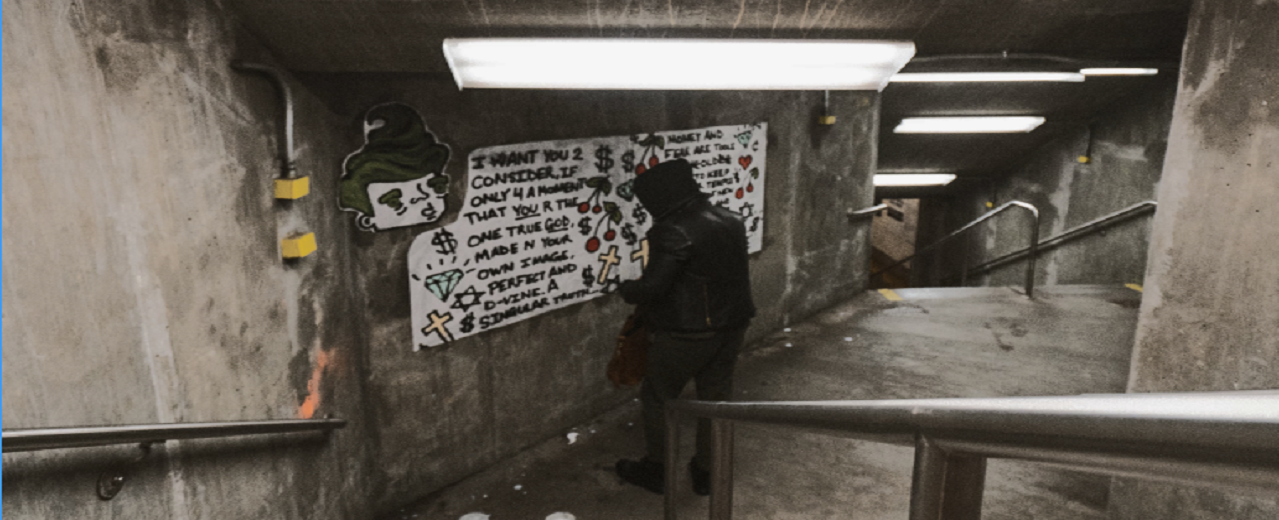 I WANT YOU 2
CONSIDER, IF
ONLY 4 A MOMENT
THAT YOU R THE
ONE TRUE GOD,
MADE N YOUR
OWN IMAGE,
PERFECT AND
D-VINE. A
SINGULAR TRUTH
MONEY AND
FEAR ARE TOOLS
TO KEEP